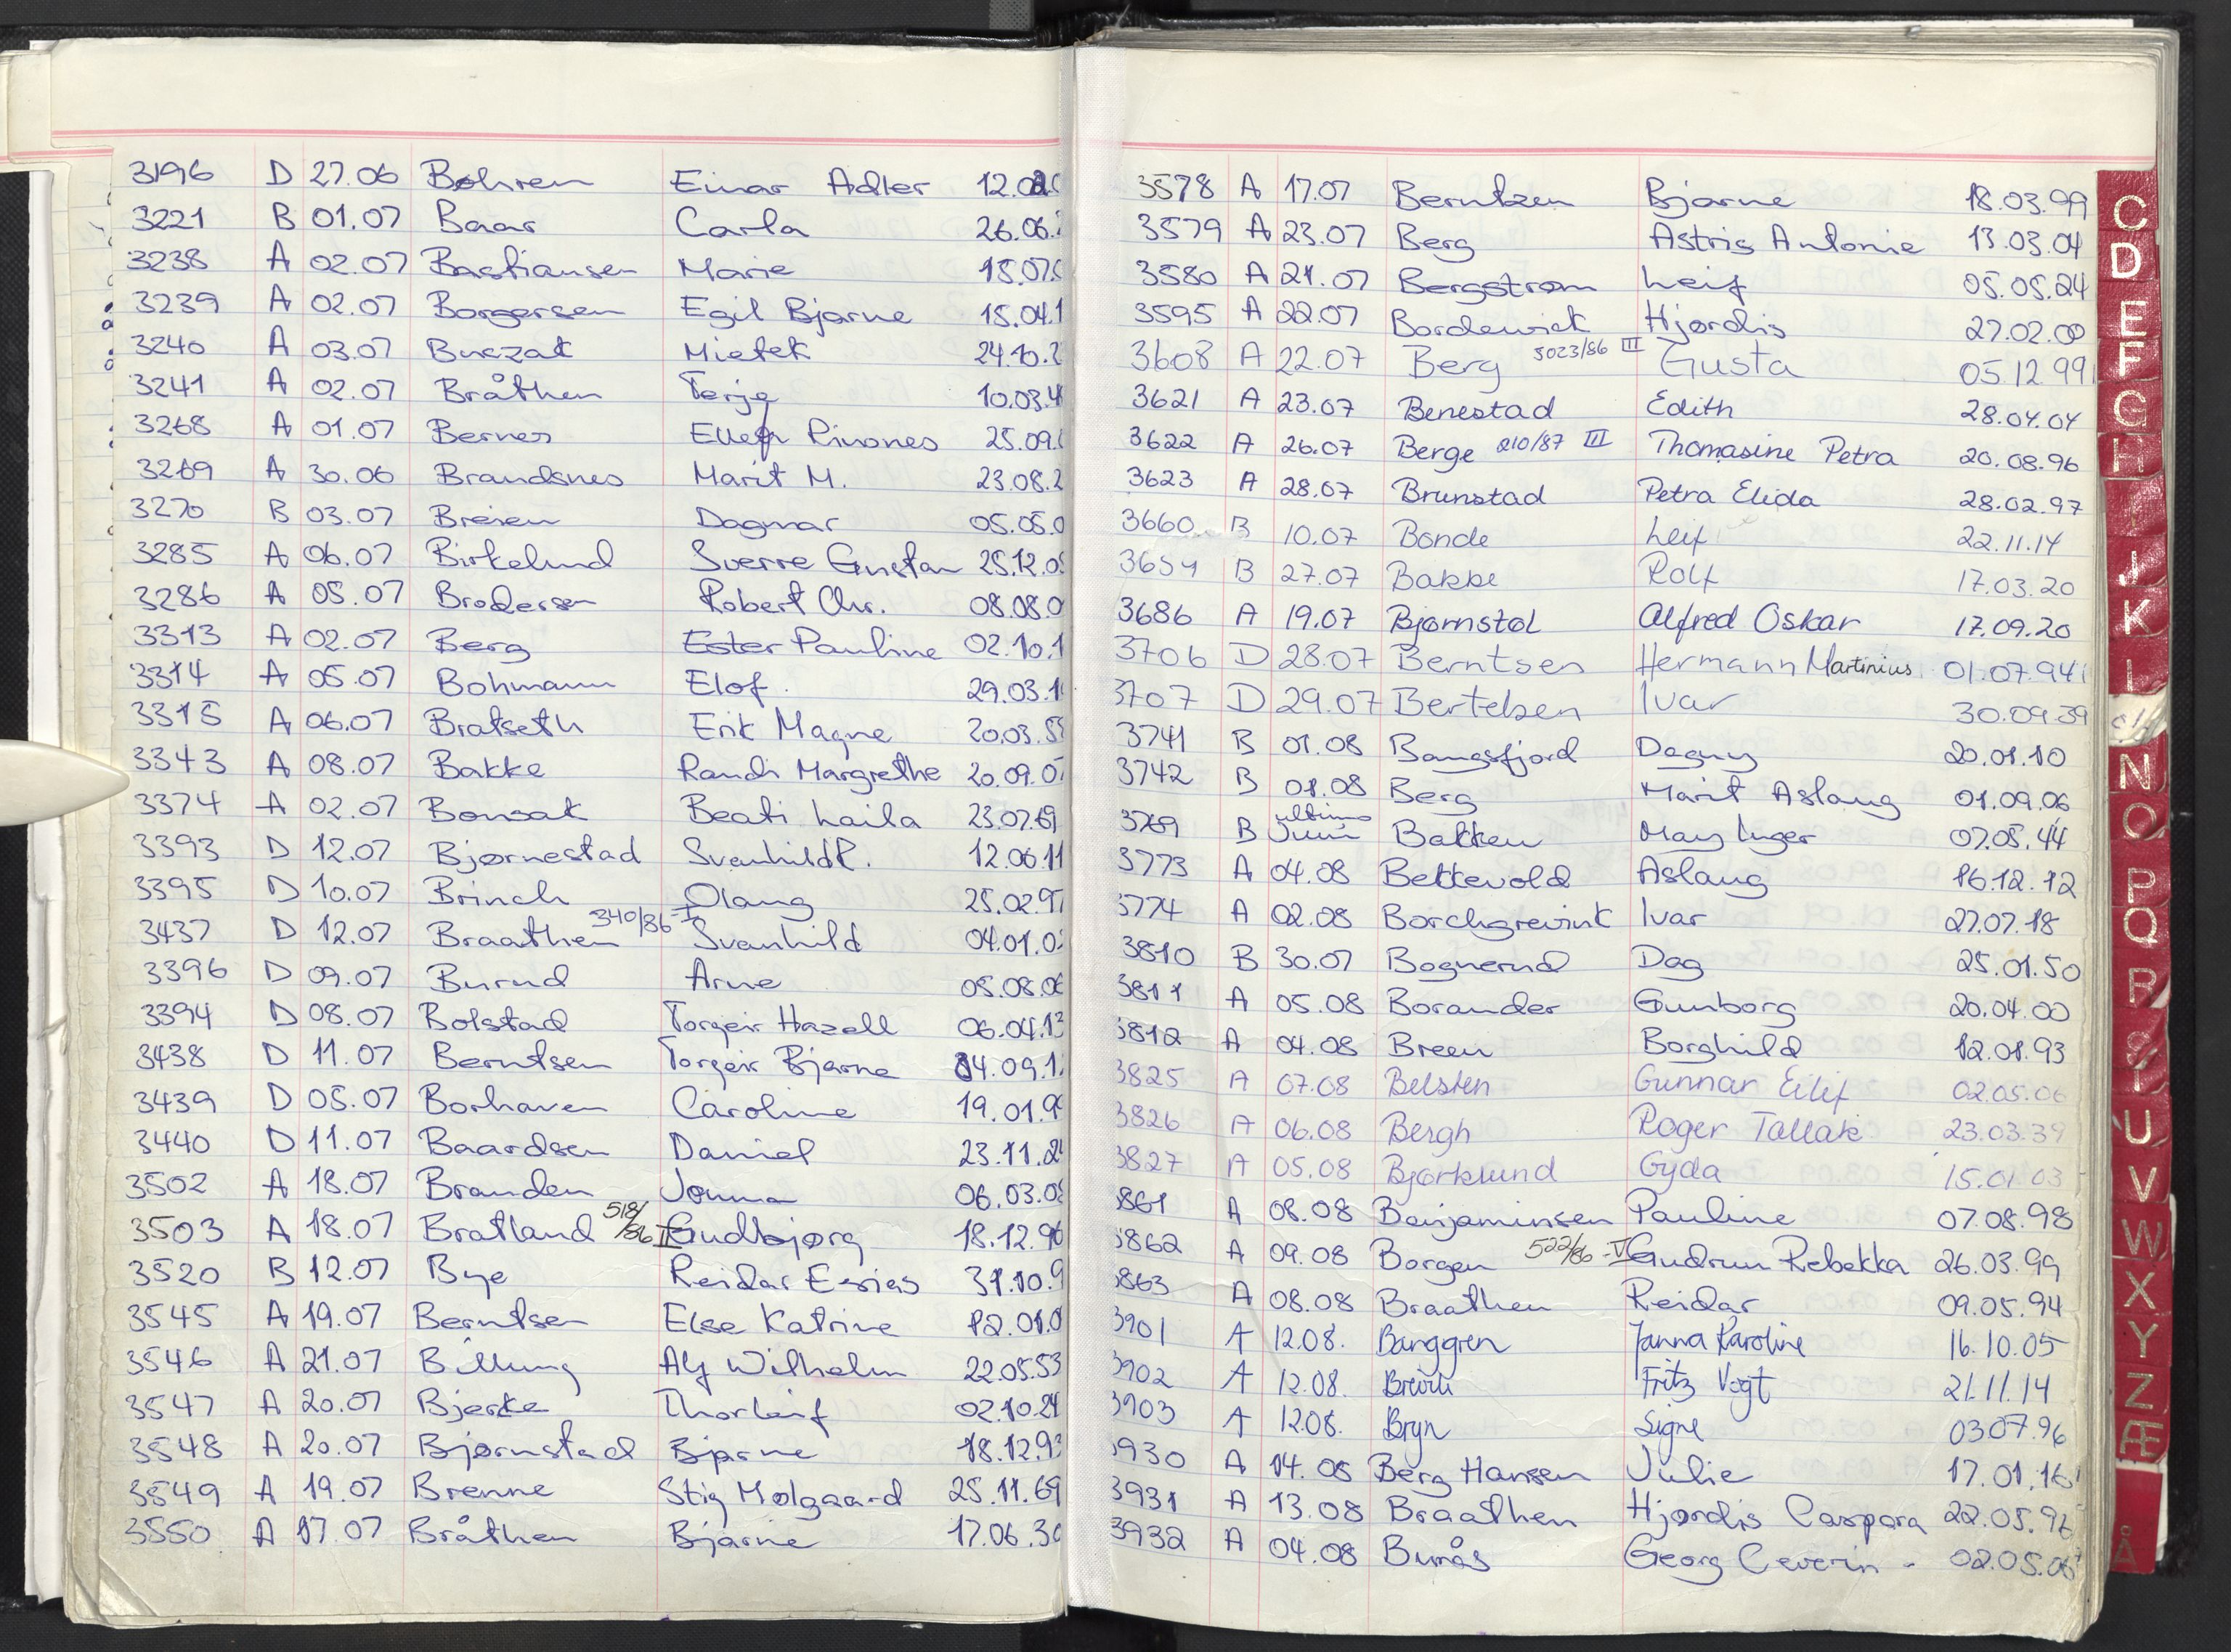 3196 D 27.06 Bohren Einar Adler 12.02.0
3221 B 01.07 Baar Carla 26.06.
3238 A 02.07 Bastiansen Marie 15.07.0
3239 A 02.07 Borgersen Egil Bjarne 15.04.1
3240 A 03.07 Buczak Mietek 24.10.2
3241 A 02.07 Bråthen Terje 10.03.4
3268 A 01.07 Bernes Ellen 25.09.
3269 A 30.06 Brandsnes Marit M. 23.08.2
3270 B 03.07 Breien Dagmar 05.05.0
3285 A 06.07 Birkelund Sverre Gustav 25.12.0
3286 A 05.07 Brodersen Robert Chr. 08.08.0
3313 A 02.07 Berg Ester Pauline 02.10.1
3314 A 05.07 Bohmann Elof 29.03.1
3315 A 06.07 Bratseth Erik Magne 20.03.5
3343 A 08.07 Bakke Randi Margrethe 20.09.0
3374 A 02.07 Bonsak Beati Laila 23.07.69
3393 D 12.07 Bjørnestad Svanhild R. 12.06.11
3395 D 10.07 Brinch Olaug 25.02.97
3437 D 12.07 Braathen 340/86-I Svanhild 04.01.0
3396 D 09.07 Burud Arne 05.08.06
3394 D 08.07 Bolstad Torgeir Hazell 06.04.13
3438 D 11.07 Berntsen Torgeir Bjarne 04.09.1
3439 D 05.07 Borhaven Caroline 19.01.9
3440 D 11.07 Baardsen Daniel 23.11.24
3502 A 18.07 Branden Jonna 06.03.0
3503 A 18.07 Bratland 518/86 II Gudbjørg 18.12.96
3520 B 12.07 Bye Reidar Esaias 31.10.9
3545 A 19.07 Berntsen Else Katrine 12.01.0
3546 A 21.07 Billung Alf Wilhelm 22.05.53
3547 A 20.07 Bjerke Thorleif 02.10.24
3548 A 20.07 Bjørnstad Bjarne 18.12.93
3549 A 19.07 Brenne Stig Molgaard 25.11.69
3550 A 17.07 Bråthen Bjarne 17.06.30
3578 A 17.07 Berntzen Bjarne 18.03.99
3579 A 23.07 Berg Astris Antonie 13.03.04
3580 A 21.07 Bergstrøm Leif 05.05.24
3595 A 22.07 Bordewick Hjørdis 27.02.00
3608 A 22.07 Berg 5023/86 III Gusta 05.12.99
3621 A 23.07 Benestad Edith 28.04.04
3622 A 26.07 Berge 210/87 III Thomasine Petra 20.08.96
3623 A 28.07 Brunstad Petra Elida 28.02.97
3660 B 10.07 Bonde Leif 22.11.14
3659 B 27.07 Bakke Rolf 17.03.20
3686 A 19.07 Bjørnstøl Alfred Oskar 17.09.20
3706 D 28.07 Berntsen Hermann Martinius 01.07.94
3707 D 29.07 Bertelsen Ivar 30.09.39
3741 B 01.08 Bangsfjord Dagny 20.01.10
3742 B 01.08 Berg Marit Aslaug 01.09.06
3769 B ultimo Juni Bakken May Inger 07.05.44
3773 A 04.08 Bekkevold Aslaug 16.12.12
3774 A 02.08 Borchgrevink Ivar 27.07.18
3810 B 30.07 Bognerud Dag 25.01.50
3811 A 05.08 Borander Gunborg 20.04.00
3812 A 04.08 Breen Borghild 12.01.93
3825 A 07.08 Belsten Gunnar Eilif 02.05.06
3826 A 06.08 Bergh Roger Tallak 23.03.39
3827 A 05.08 Bjørklund Gyda 15.01.03
3861 A 08.08 Benjaminsen Pauline 07.08.98
3862 A 09.08 Borgen 522/86-V Gudrun Rebekka 26.03.99
3863 A 08.08 Braathen Reidar 09.05.94
3901 A 12.08. Banggren Janna Karoline 16.10.05
3902 A 12.08. Fritz Vogt 21.11.14
3903 A 12.08. Bryn Signe 03.07.96
3930 A 14.08 Berg Hansen Julie 17.01.16
3931 A 13.08 Braathen Hjørdis Caspara 22.05.96
3932 A 04.08 Burås Georg Ceverin 02.05.06
C
D
E
F
G
H
J
K
L
N
O
P
Q
R
S
U
V
W
X
Y
Z
Æ
Å